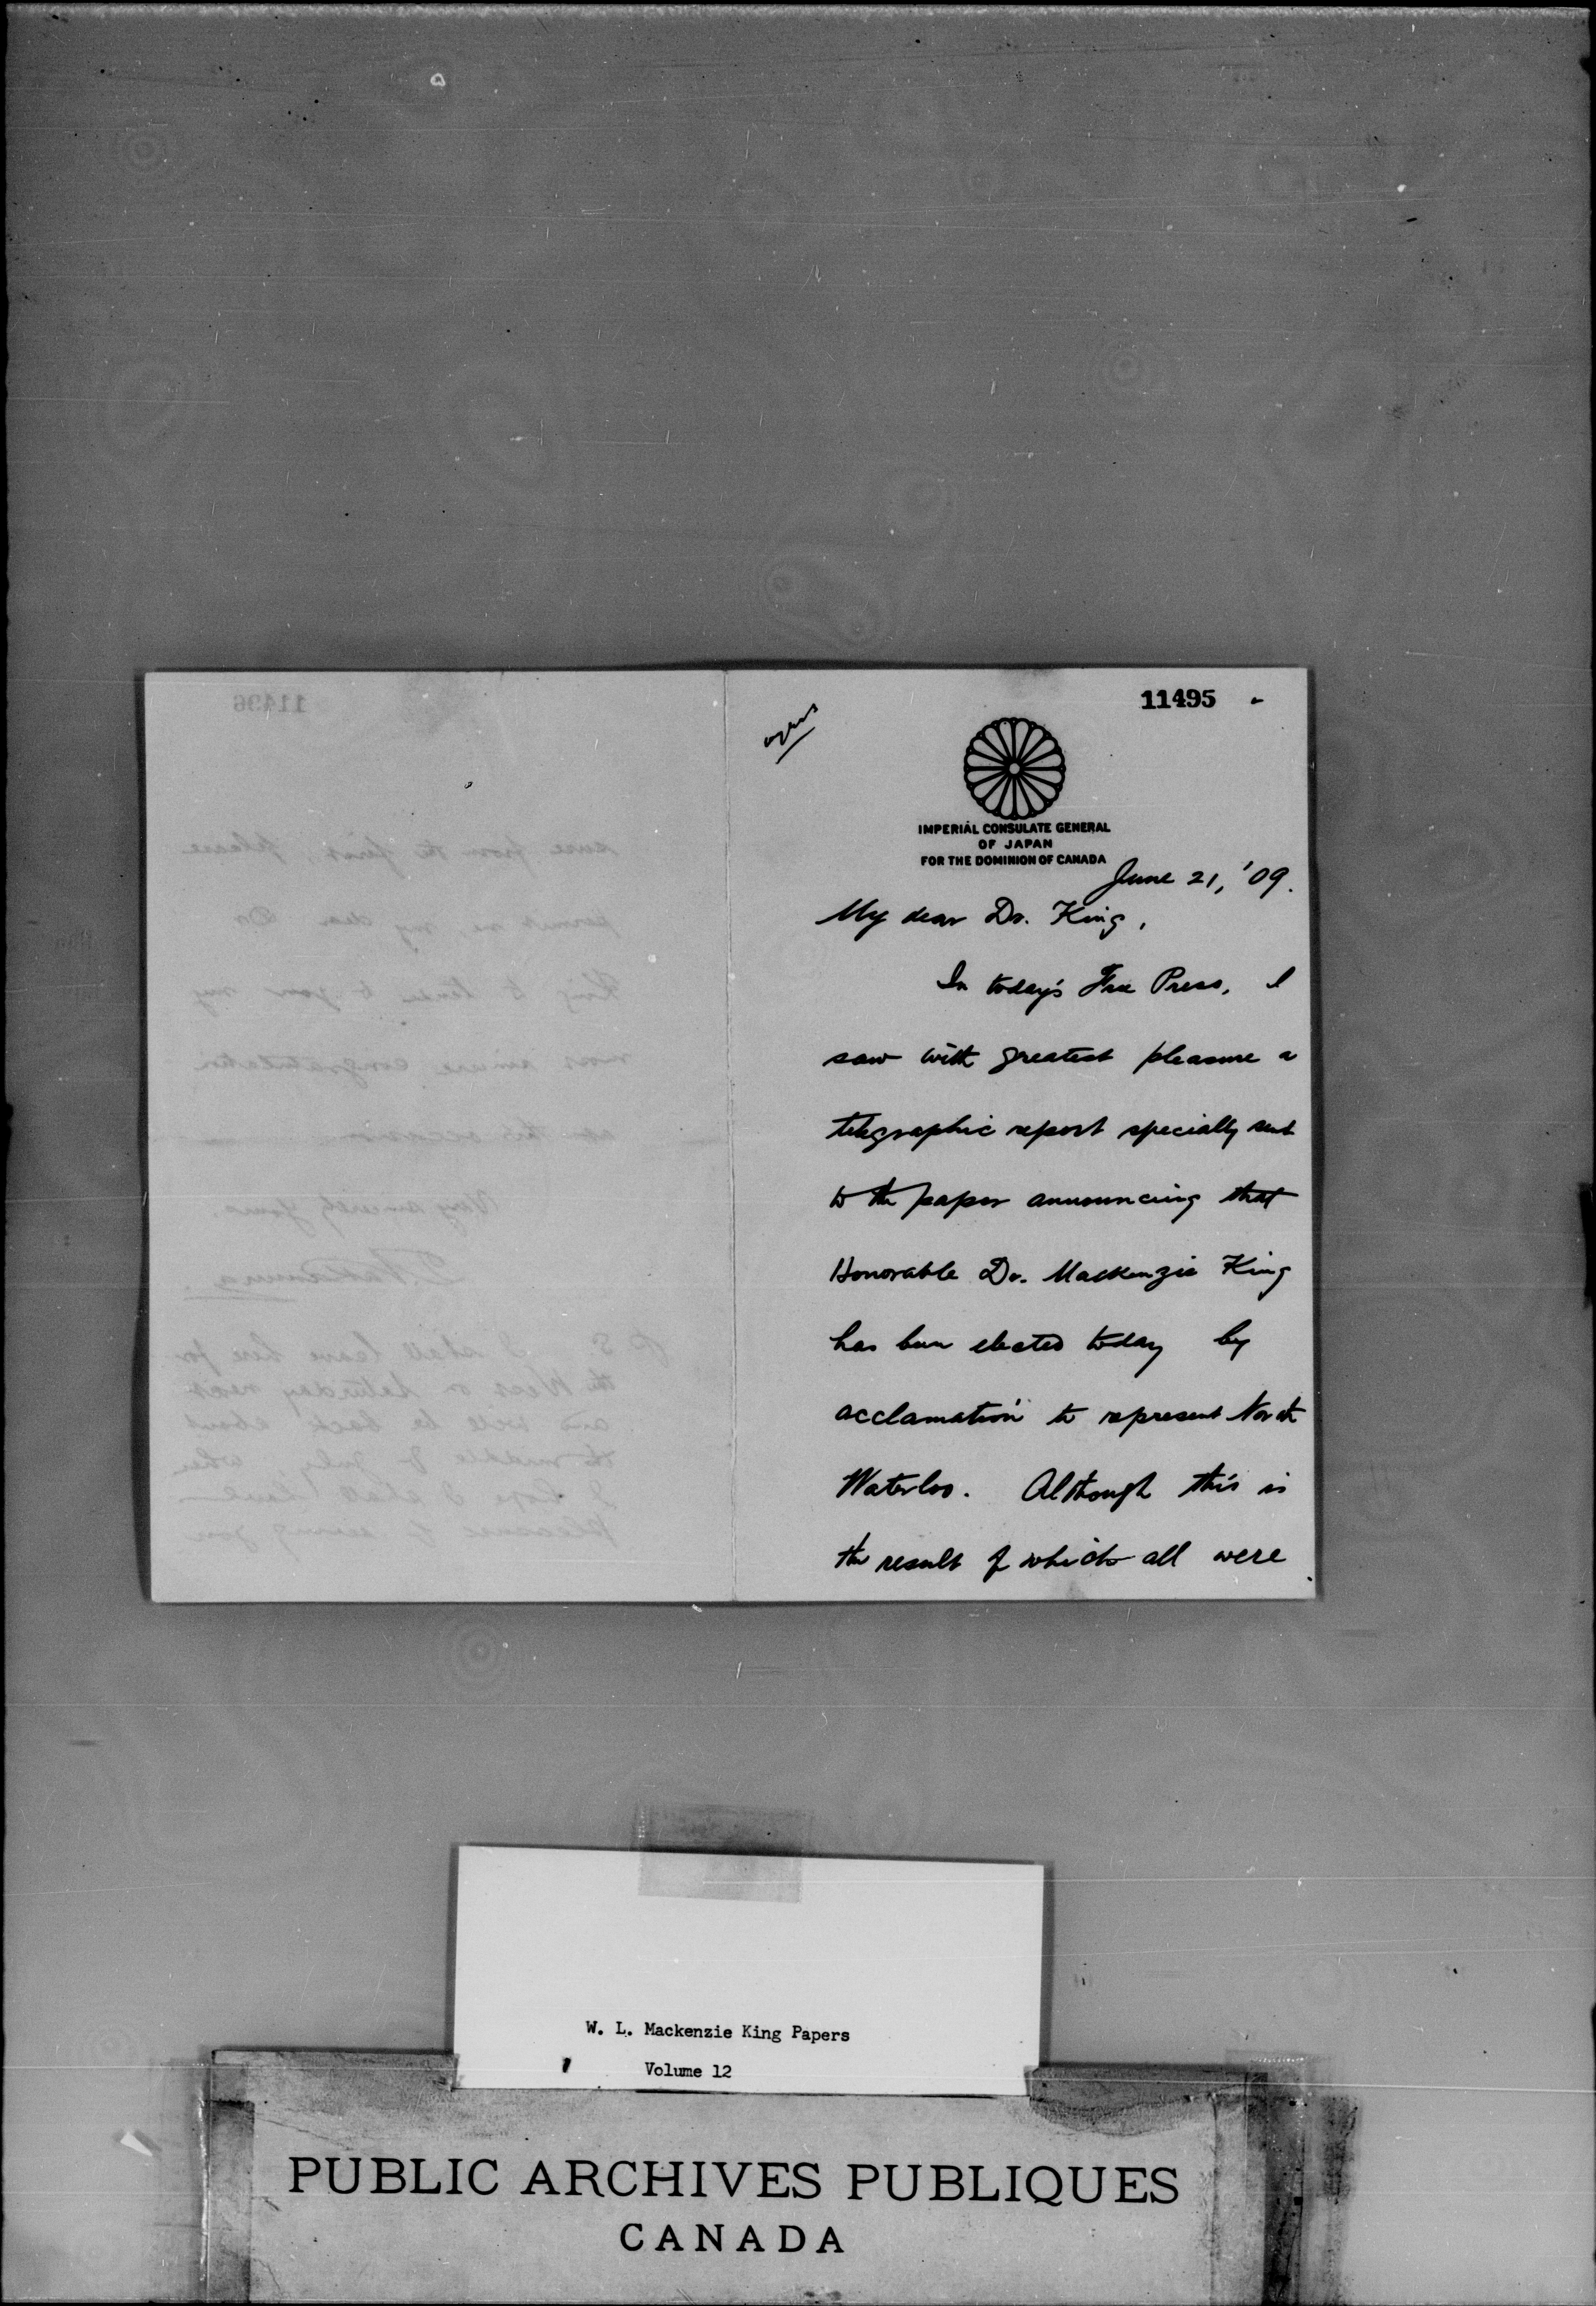 11495
IMPERIAL CONSULATE GENERAL
OF JAPAN
FOR THE DOMINION OF CANADA
June 21, '09.
My dear Dr. King,
In today's Free Press, I
saw with greatest pleasure a
telegraphic report specially sent
to the paper announcing that
Honorable Dr. Mackenzie King
has been elected today by
acclamation to represent North
Waterloo. Although this is
the result of which all were
11496
sure from the first please
permit me, my dear Dr
King to tender to you my
most sincere congratulation
on the occasion
Very sincerely yours,
P.S. I shall leave here for
the West on Saturday next
and will be back about
the middle of July, when
I hope I shall have
pleasure of seeing you
W. L. Mackenzie King Papers
Volume 12
PUBLIC ARCHIVES PUBLIQUES
CANADA